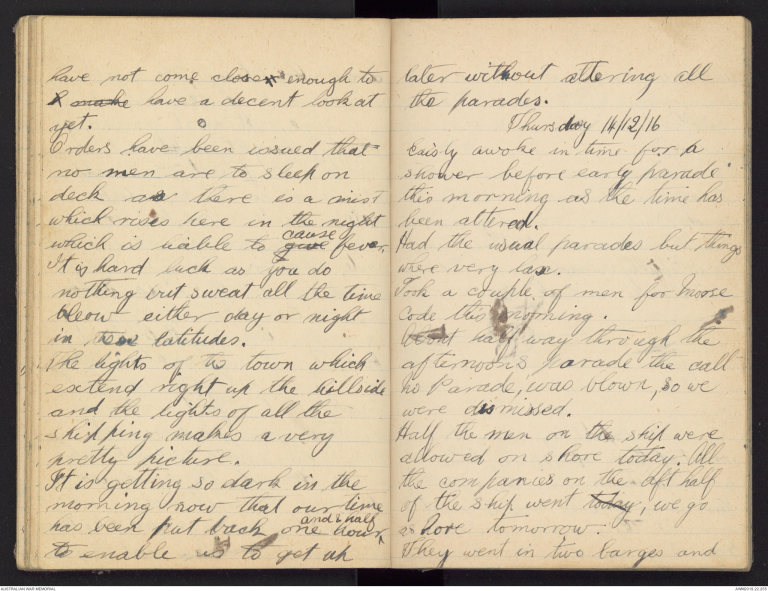 have not come close enough to
make have a decent look at
yet.
Orders have been issued that
no men are to sleep on
deck as there is a mist
which rises here in the night
cause
which is liable to give fever.
It is hard luck as you do
nothing but sweat all the time
bleow either day or night
in latitudes.
The lights of the town which
extend right up the hillside
and the lights of all the
shipping makes a very
pretty picture.
It is getting so dark in the
morning now that our time
and ½ half
has been put back one hour
to enable us to get up
later without altering all
the parades.
Thursday 14/12/16
awoke in time for a
shower before early parade
this morning as the time has
been altered.
Had the usual parades but things
where very lax.
Took a couple of men for Moose
Code this morning.
About half way through the
afternoons parade the call
no Parade, was blown, so we
were dismissed.
Half the men on the ship were
allowed on shore today. All
the companies on the aft half
of the ship went today, we go
ashore tomorrow.
They went in two barges and
AUSTRALIAN WAR MEMORIAL